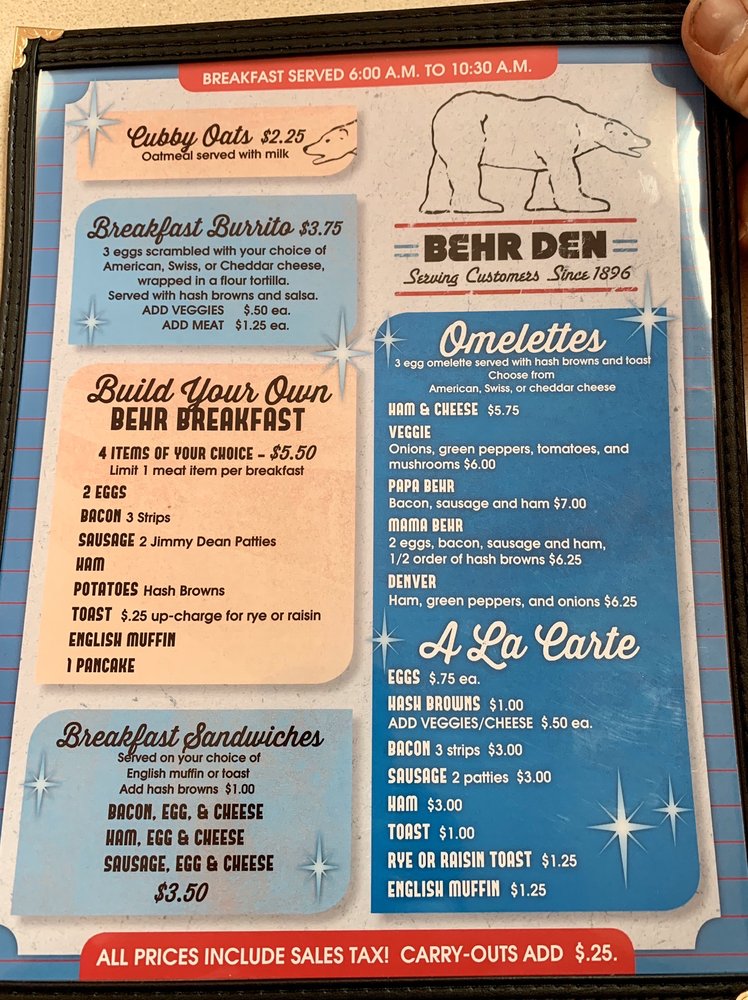 BREAKFAST SERVED 6:00 A.M. TO 10:30 A.M.
Cubby Oats $2.25
Oatmeal served with milk
Breakfast Burrito $3.75
3 eggs scrambled with your choice of
American, Swiss, or Cheddar cheese,
wrapped in a flour tortilla.
Served with hash browns and salsa.
ADD VEGGIES $.50 ea.
ADD MEAT $1.25 ea.
Build Your Own
BEHR BREAKFAST
4 ITEMS OF YOUR CHOICE - $5.50
Limit 1 meat item per breakfast
2 EGGS
BACON 3 Strips
SAUSAGE 2 Jimmy Dean Patties
HAM
POTATOES Hash Browns
TOAST $.25 up-charge for rye or raisin
ENGLISH MUFFIN
1 PANCAKE
Breakfast Sandwiches
Served on your choice of
English muffin or toast
Add hash browns $1.00
BACON, EGG, & CHEESE
HAM, EGG & CHEESE
SAUSAGE, EGG & CHEESE
$3.50
BEHR DEN
Serving Customers Since 1896
Omelettes
3 egg omelette served with hash browns and toast
Choose from
American, Swiss, or cheddar cheese
HAM & CHEESE $5.75
VEGGIE
Onions, green peppers, tomatoes, and
mushrooms $6.00
PAPA BEHR
Bacon, sausage and ham $7.00
MAMA BEHR
2 eggs, bacon, sausage and ham,
1/2 order of hash browns $6.25
DENVER
Ham, green peppers, and onions $6.25
A La Carte
EGGS $.75 ea.
HASH BROWNS $1.00
ADD VEGGIES/CHEESE $.50 ea.
BACON 3 strips $3.00
SAUSAGE 2 patties $3.00
HAM $3.00
TOAST $1.00
RYE OR RAISIN TOAST $1.25
ENGLISH MUFFIN $1.25
ALL PRICES INCLUDE SALES TAX! CARRY-OUTS ADD $.25.